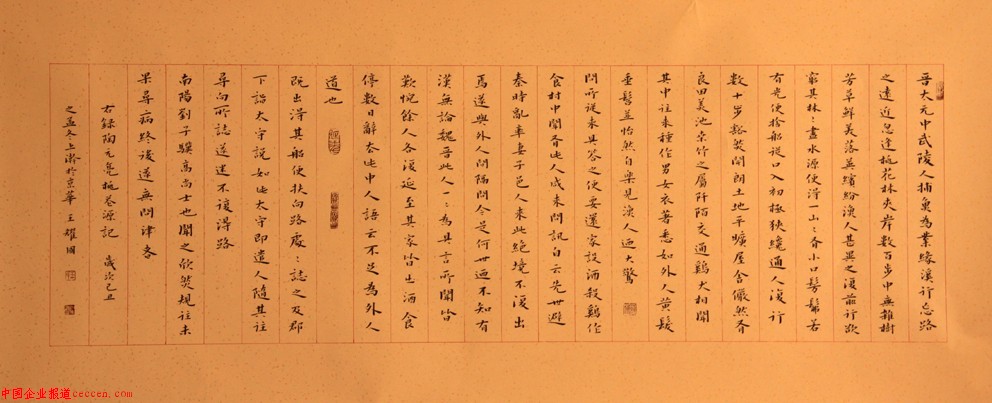 晉太元中武陵人捕魚為業緣溪行忘路
之遠近忽逢桃花林夾岸數百步中無雜樹
芳草鮮美落英繽紛漁人甚異之復前行欲
窮其林林盡水源便得一山山有小口髣髴若
有光便捨船從口入初極狹纔通人復行
數十步豁然開朗土地平曠屋舍儼然有
良田美池桑竹之屬阡陌交通雞犬相聞
其中往來種作男女衣著悉如外人黃髮
垂髫並怡然自樂見漁人迺大驚
問所從來具答之便要還家設酒殺雞作
食村中聞有此人咸來問訊自云先世避
秦時亂率妻子邑人來此絕境不復出
焉遂與外人間隔問今是何世迺不知有
漢無論魏晉此人一一為具言所聞皆
歎惋餘人各復延至其家皆出酒食
停數日辭去此中人語云不足為外人
道也
既出得其船便扶向路處處誌之及郡
下詣太守說如此太守即遣人隨其往
尋向所誌遂迷不復得路
南陽劉子驥高尚士也聞之欣然規往未
果尋病終後遂無問津者
右錄陶元亮桃花源記 歲次己丑
之孟冬上澣於京華 王耀國
中国企业报道ceccen.com